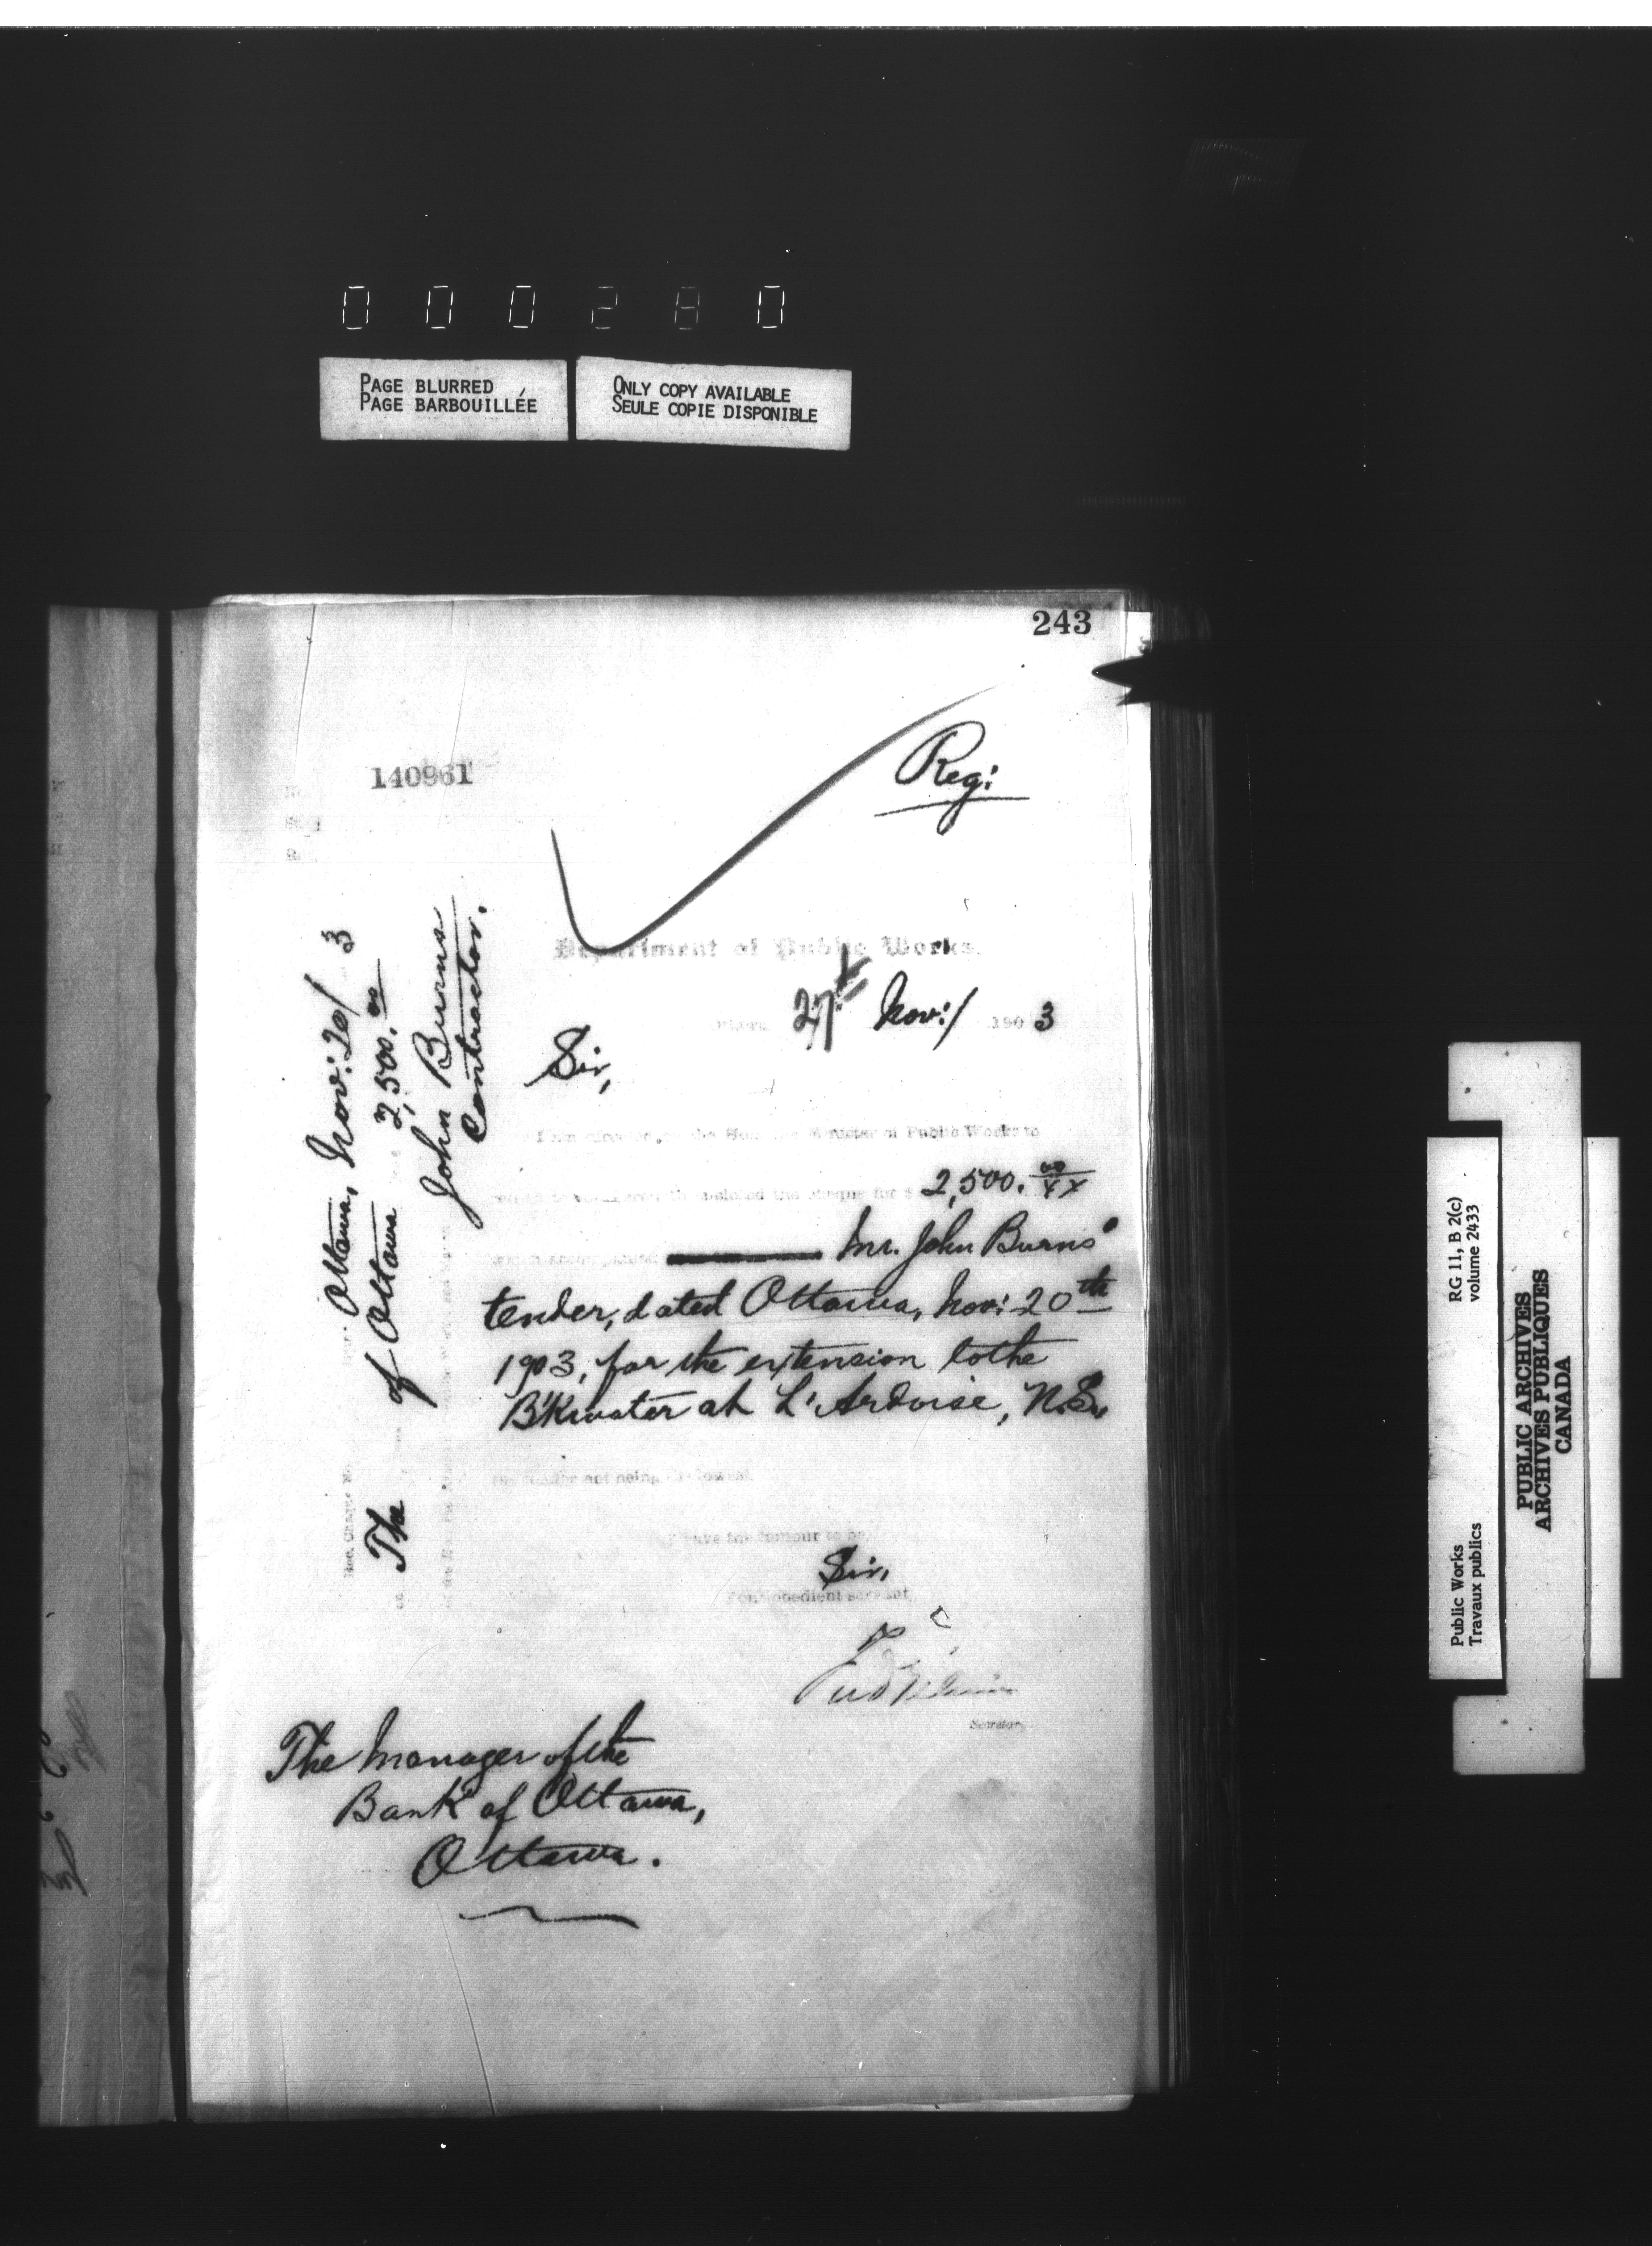 000280
PAGE BLURRED
PAGE BARBOUILLÉE
ONLY COPY AVAILABLE
SEULE COPIE DISPONIBLE
243
140961
Reg:
Department of Public Works.
27th Nov:/ 1903
Sir,
Minister of Public Works to
enclosed the cheque for $ 2,500. 00/xx
Mr. John Burns'
tender, dated Ottawa, Nov: 20th
1903, for the extension to the
B'Kwater at L'Ardoise, N.S.,
the tender not being the lowest.
I have the honour to be,
Sir,
Your obedient servant,
Secretary.
The Manager of the
Bank of Ottawa,
Ottawa.
Ottawa, Nov: 20/ 3
The of Ottawa 2,500. 00
John Burns
Contractor.
Public Works
Travaux publics
RG 11, B 2(c)
volume 2433
PUBLIC ARCHIVES
ARCHIVES PUBLIQUES
CANADA